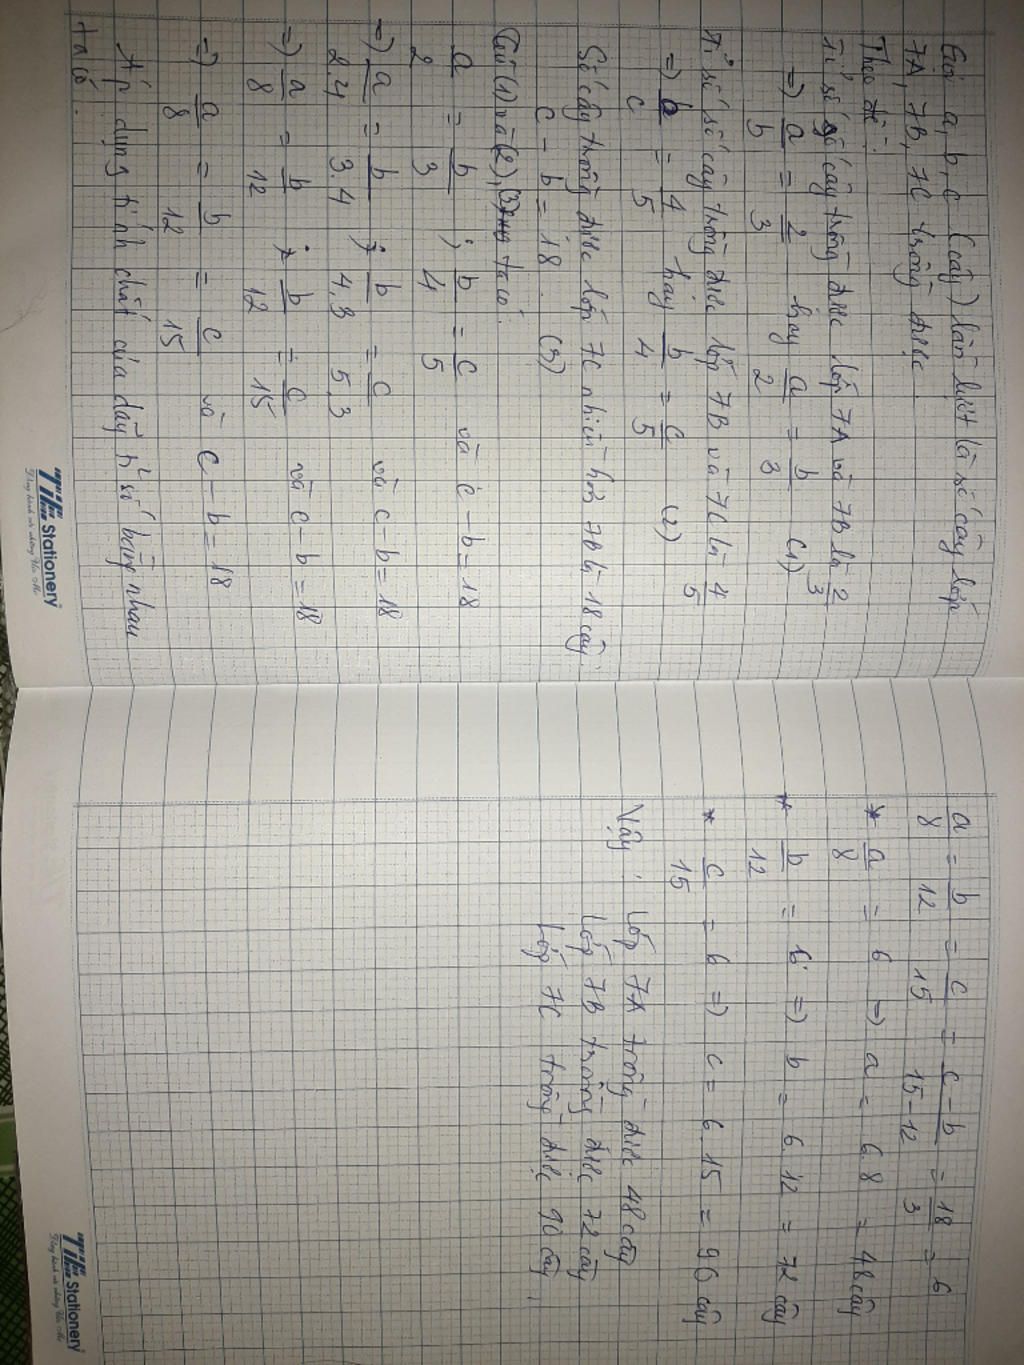 Gọi a, b, c (cây) lần lượt là số cây lớp
7A, 7B, 7C trồng được.
Theo đề:
Tỉ số số cây trồng được lớp 7A và 7B là 2/3
=> a/b = 2/3 hay a/2 = b/3 (1)
Tỉ số số cây trồng được lớp 7B và 7C là 4/5
=> b/c = 4/5 hay b/4 = c/5 (2)
Số cây trồng được lớp 7C nhiều hơn 7B là 18 cây
c - b = 18 (3)
Từ (1) và (2), (3) ta có:
a/2 = b/3 ; b/4 = c/5 và c - b = 18
=> a/2.4 = b/3.4 ; b/4.3 = c/5.3 và c - b = 18
=> a/8 = b/12 ; b/12 = c/15 và c - b = 18
=> a/8 = b/12 = c/15 và c - b = 18
Áp dụng tính chất của dãy tỉ số bằng nhau
ta có:
TiTi Stationery
a/8 = b/12 = c/15 = c - b/15 - 12 = 18/3 = 6
* a/8 = 6 => a = 6.8 = 48 cây
* b/12 = 6 => b = 6.12 = 72 cây
* c/15 = 6 => c = 6.15 = 90 cây
Vậy: Lớp 7A trồng được 48 cây
Lớp 7B trồng được 72 cây
Lớp 7C trồng được 90 cây.
TiTi Stationery